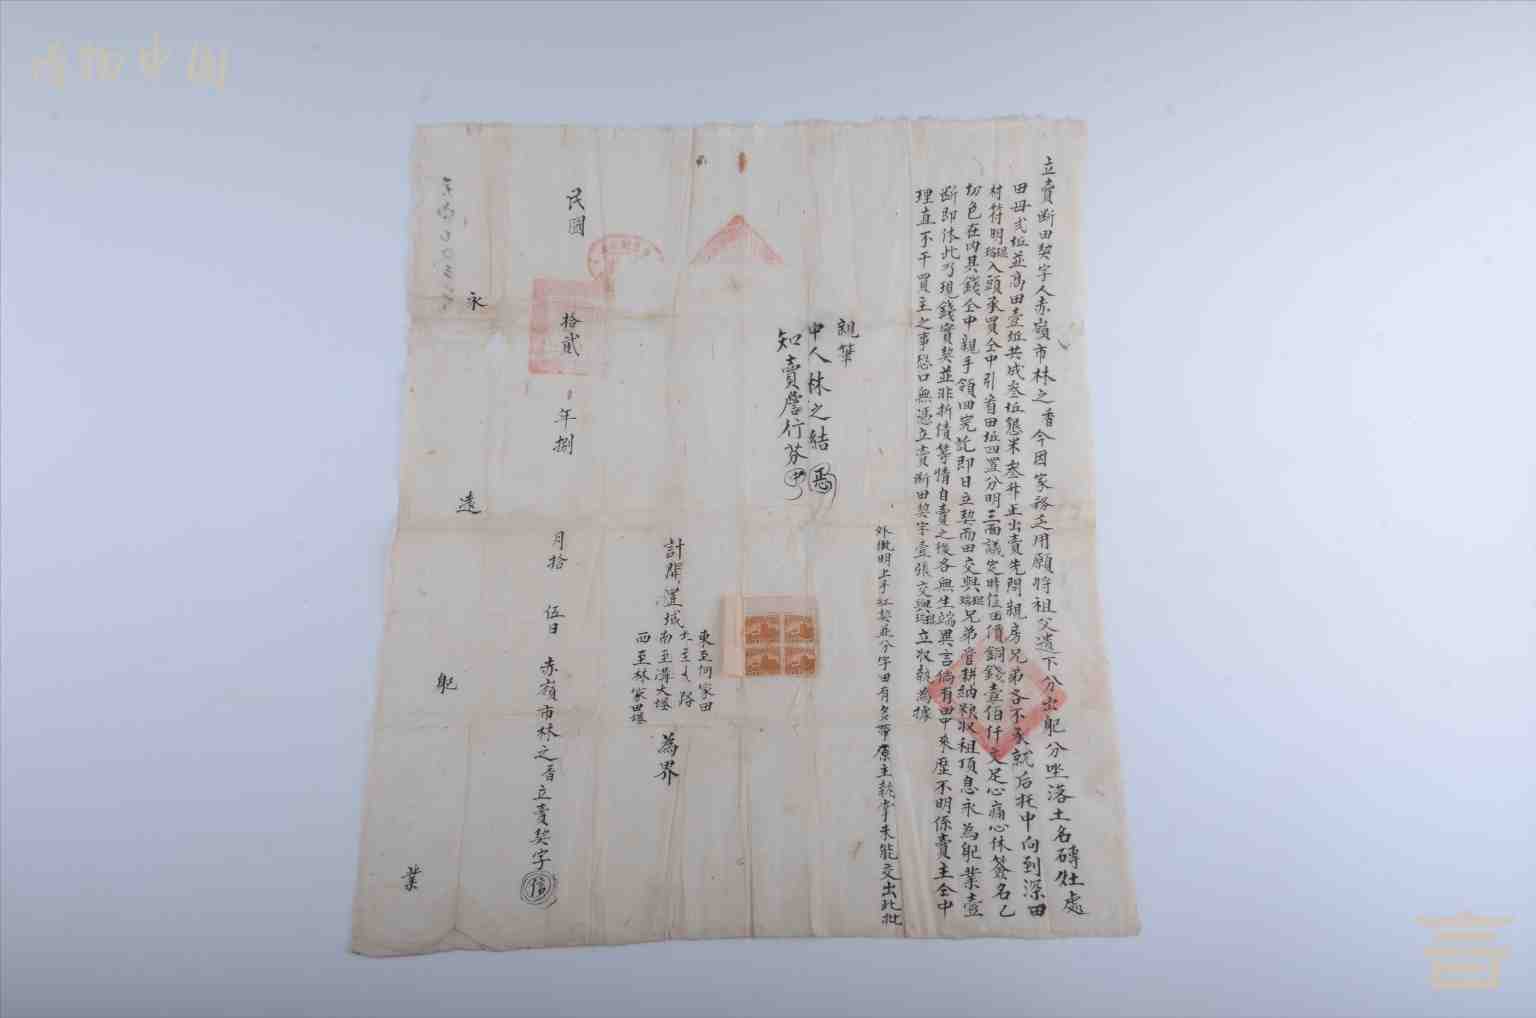 立賣斷田契字人赤嶺市林之香今因家務乏用願将祖父遺下分出躬分坐落土名磚灶處
田毋弍坵並高田壹坵共成叁坵懇米叁升正出賣先問親房兄弟各不承就后托中向到深田
村符明瑶琨入頭承買仝中引省田坵四置分明三面議定時值田價銅錢壹佰仟文足心痛心休簽名乙
切色在内其錢仝中親手領囬完訖即日立契而田交與瑶琨兄弟管耕納粮收租頂息永為躬業壹
断即休此乃現錢實契並非折債等情自賣之後各無生端異言倘有田中來歷不明係賣主仝中
理直不干買主之事恐口無憑立賣斷田契字壹張交與瑶琨立收執為據
外徽明上手紅契並分字田有多帶原主執掌未能交出此批
親筆
中人林之結
知賣詹行芬
東至何家田
南至溝大壆
西至林家田壆
計開置城
為界
民國拾貳年捌月拾伍日赤嶺市林之香立賣契字
永遠躬業